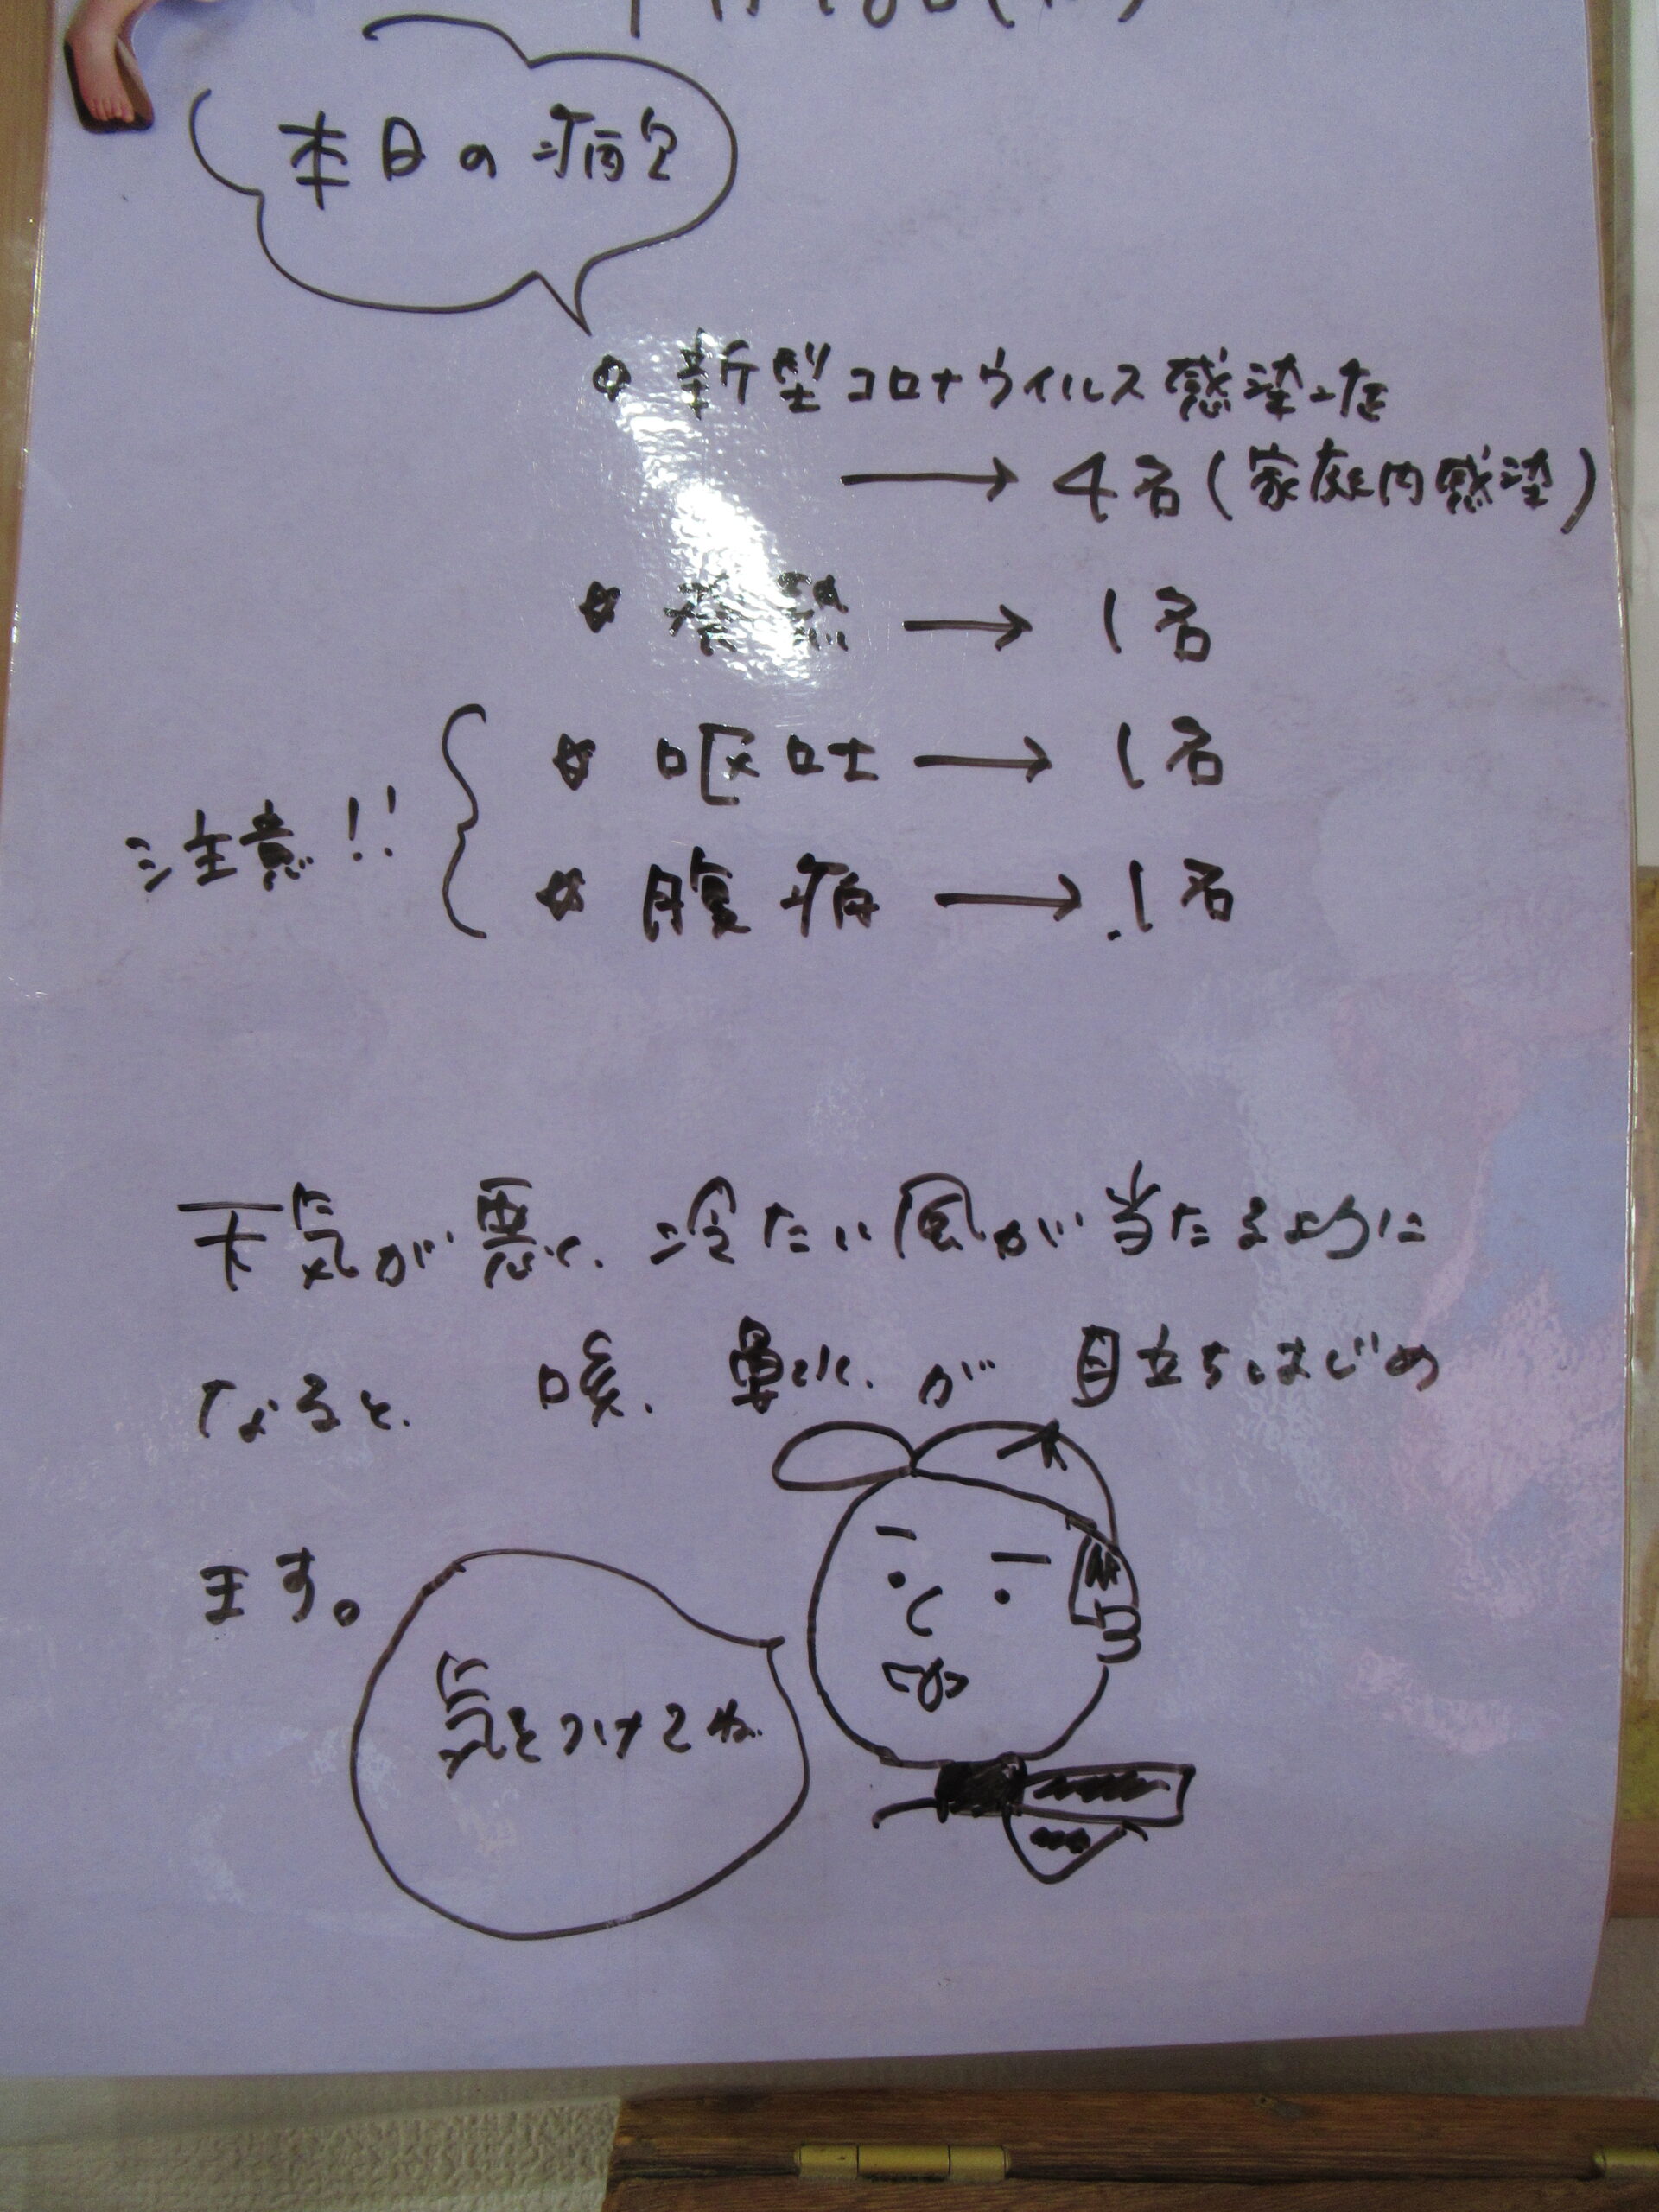 本日の病欠
✿ 新型コロナウイルス感染症
→ 4名(家庭内感染)
✿ 発熱 → 1名
✿ 嘔吐 → 1名
注意!!
✿ 腹痛 → 1名
天気が悪く、冷たい風が当たるように
なると、咳、鼻水、が 目立ちはじめ
ます。
気をつけてね